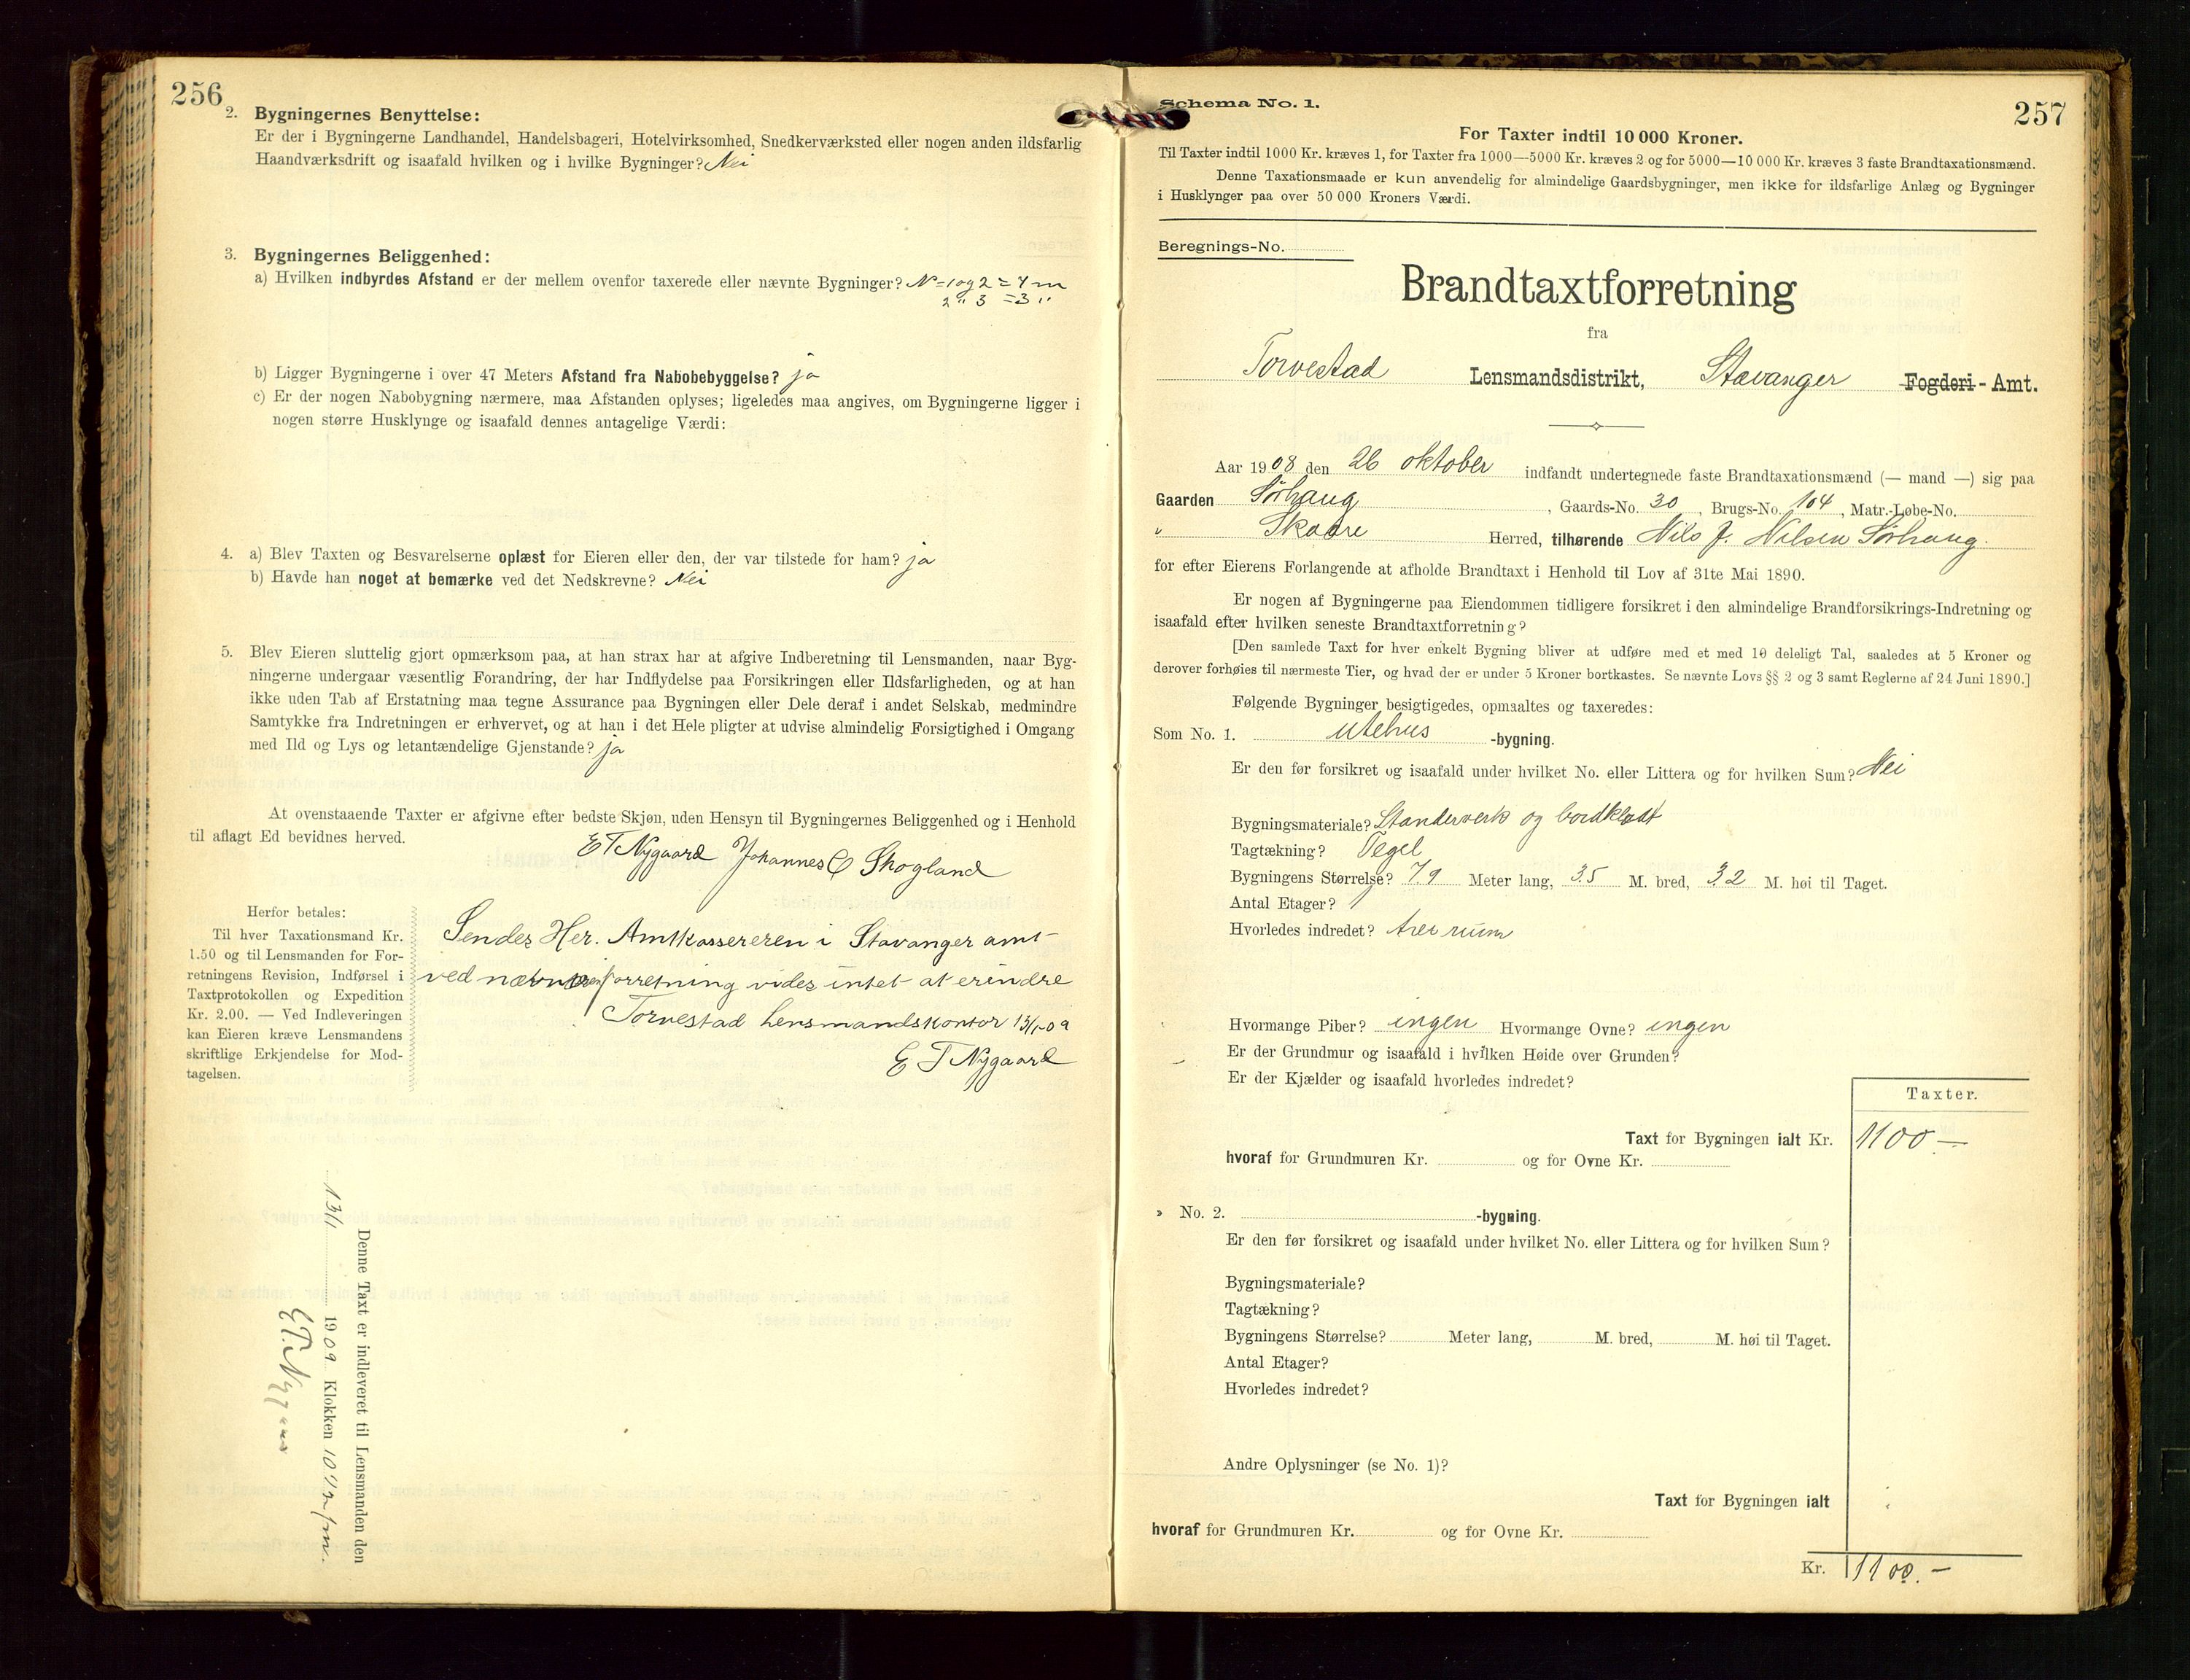 256
2. Bygningernes Benyttelse:
Er der i Bygningerne Landhandel, Handelsbageri, Hotelvirksomhed, Snedkerværksted eller nogen anden ildsfarlig
Haandværksdrift og isaafald hvilken og i hvilke Bygninger? Nei
3. Bygningernes Beliggenhed:
a) Hvilken indbyrdes Afstand er der mellem ovenfor taxerede eller nævnte Bygninger? No 1 og 2 = 7 m
2 " 3 = 3 "
b) Ligger Bygningerne i over 47 Meters Afstand fra Nabobebyggelse? ja
c) Er der nogen Nabobygning nærmere, maa Afstanden oplyses; ligeledes maa angives, om Bygningerne ligger i
nogen større Husklynge og isaafald dennes antagelige Værdi:
4. a) Blev Taxten og Besvarelserne oplæst for Eieren eller den, der var tilstede for ham? ja
b) Havde han noget at bemærke ved det Nedskrevne? Nei
5. Blev Eieren sluttelig gjort opmærksom paa, at han strax har at afgive Indberetning til Lensmanden, naar Byg-
ningerne undergaar væsentlig Forandring, der har Indflydelse paa Forsikringen eller Ildsfarligheden, og at han
ikke uden Tab af Erstatning maa tegne Assurance paa Bygningen eller Dele deraf i andet Selskab, medmindre
Samtykke fra Indretningen er erhvervet, og at han i det Hele pligter at udvise almindelig Forsigtighed i Omgang
med Ild og Lys og letantændelige Gjenstande? ja
At ovenstaaende Taxter er afgivne efter bedste Skjøn, uden Hensyn til Bygningernes Beliggenhed og i Henhold
til aflagt Ed bevidnes herved.
E T Nygaard Johannes C Skogland
Herfor betales:
Til hver Taxationsmand Kr.
1.50 og til Lensmanden for For-
retningens Revision, Indførsel i
Taxtprotokollen og Expedition
Kr. 2.00. — Ved Indleveringen
kan Eieren kræve Lensmandens
skriftlige Erkjendelse for Mod-
tagelsen.
Sendes Her. Amtkassereren i Stavanger amt
ved forretning vides intet at erindre
Torvestad Lensmandskontor 13/1-09
E T Nygaard
Denne Taxt er indleveret til Lensmanden den
13/1 1909 Klokken 10 1/2 fm.
E T. Nygaard
Schema No. 1.
257
For Taxter indtil 10 000 Kroner.
Til Taxter indtil 1000 Kr. kræves 1, for Taxter fra 1000—5000 Kr. kræves 2 og for 5000—10 000 Kr. kræves 3 faste Brandtaxationsmænd.
Denne Taxationsmaade er kun anvendelig for almindelige Gaardsbygninger, men ikke for ildsfarlige Anlæg og Bygninger
i Husklynger paa over 50 000 Kroners Værdi.
Beregnings-No.
Brandtaxtforretning
fra
Torvestad Lensmandsdistrikt, Stavanger Fogderi - Amt.
Aar 1908 den 26 oktober indfandt undertegnede faste Brandtaxationsmænd (— mand —) sig paa
Gaarden Sørhaug, Gaards-No. 30, Brugs-No. 104, Matr.-Løbe-No.
" Skaare Herred, tilhørende Nils J. Nilsen Sørhaug.
for efter Eierens Forlangende at afholde Brandtaxt i Henhold til Lov af 31te Mai 1890.
Er nogen af Bygningerne paa Eiendommen tidligere forsikret i den almindelige Brandforsikrings-Indretning og
isaafald efter hvilken seneste Brandtaxtforretning?
[Den samlede Taxt for hver enkelt Bygning bliver at udføre med et med 10 deleligt Tal, saaledes at 5 Kroner og
derover forhøies til nærmeste Tier, og hvad der er under 5 Kroner bortkastes. Se nævnte Lovs §§ 2 og 3 samt Reglerne af 24 Juni 1890.]
Følgende Bygninger besigtigedes, opmaaltes og taxeredes:
Som No. 1. utehus -bygning.
Er den før forsikret og isaafald under hvilket No. eller Littera og for hvilken Sum? Nei
Bygningsmateriale? Standerverk og bordklædt
Tagtækning? Tegel
Bygningens Størrelse? 7.9 Meter lang, 3.5 M. bred, 3.2 M. høi til Taget.
Antal Etager? 1
Hvorledes indredet? rum
Hvormange Piber? ingen Hvormange Ovne? ingen
Er der Grundmur og isaafald i hvilken Høide over Grunden?
Er der Kjælder og isaafald hvorledes indredet?
Taxter.
Taxt for Bygningen ialt Kr. 1100 —
hvoraf for Grundmuren Kr. og for Ovne Kr.
» No. 2. -bygning.
Er den før forsikret og isaafald under hvilket No. eller Littera og for hvilken Sum?
Bygningsmateriale?
Tagtækning?
Bygningens Størrelse? Meter lang, M. bred, M. høi til Taget.
Antal Etager?
Hvorledes indredet?
Andre Oplysninger (se No. 1)?
Taxt for Bygningen ialt
hvoraf for Grundmuren Kr. og for Ovne Kr.
Kr. 1100.—